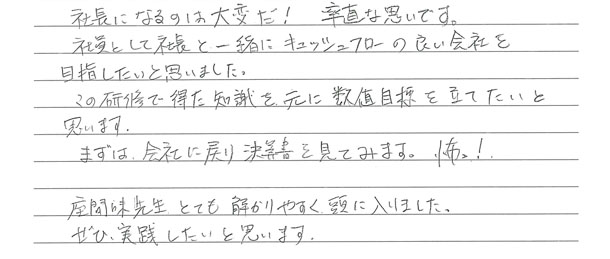 社長になるのは大変だ! 率直な思いです。
社員として社長と一緒にキャッシュフローの良い会社を
目指したいと思いました。
この研修で得た知識を元に数値目標を立てたいと
思います.
まずは、会社に戻り決算書を見てみます。怖っ!
座間味先生 とても解かりやすく頭に入りました。
ぜひ、実践したいと思います.